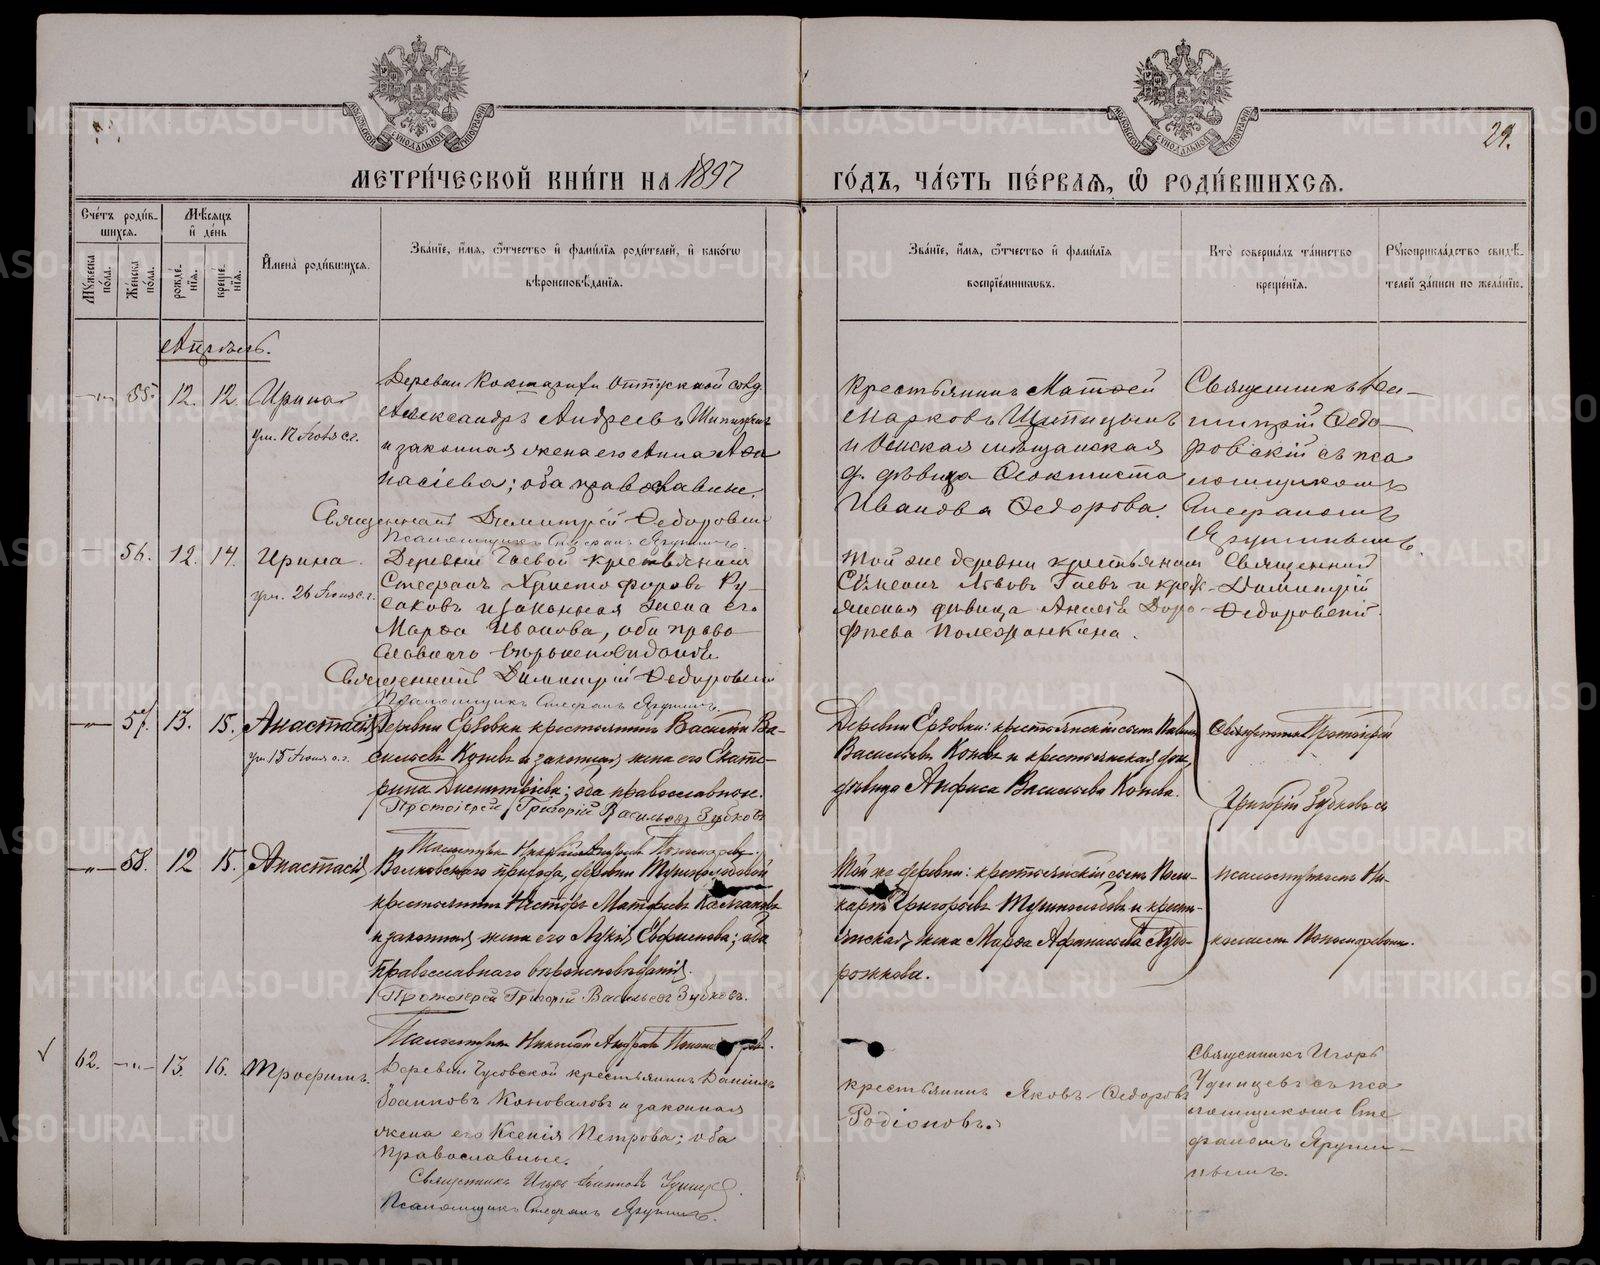 МЕТРИ́ЧЕСКОЙ КНИ́ГИ НА 1897
ГО́ДЪ, ЧА́СТЬ ПЕ́РВАЯ, Ѽ РОДИ́ВШИХСЯ.
29.
Сче́тъ роди́в-
шихся.
Мѣ́сяцъ
и҆ де́нь
Му́жеска по́ла.
Же́нска по́ла.
рожде́-
нїя.
креще́-
нїя.
И҆мена̀ роди́вшихся.
Зва́нїе, и҆́мя, ѻ҆́тчество и҆ фами́лїя роди́телей, и҆ како́гѡ
вѣроисповѣ́данїя.
Зва́нїе, и҆́мя, ѻ҆́тчество и҆ фами́лїя
воспрїе́мниковъ.
Кто̀ соверша́лъ та́инство
креще́нїя.
Рꙋкоприкла́дство свидѣ́-
телей за́писи по жела́нїю.
Апрѣль.
55. 12. 12. Ирина
ум. 17 Іюня с.г.
Деревни отпускной
Александръ Андреевъ Шипицынъ
и законная жена его Анна Аѳа
насіева; оба православные.
Священникъ Димитрій Ѳедоровскій
Псаломщикъ Стефанъ Яругинъ.
Крестьянинъ Матѳей
Марковъ Шипицынъ
и мѣщанская
д. дѣвица Ѳеоктиста
Иванова Ѳедорова.
Священникъ Ди-
митрій Ѳедо-
ровскій съ пса
ломщикомъ
Стефаномъ
56. 12. 14. Ирина
ум. 26 Іюня с.г.
Деревни Гаевой крестьянинъ
Стефанъ Христофоровъ Ру-
саковъ и законная жена его
Марѳа Иванова, оба право
славнаго вѣроисповѣданія
Священникъ Димитрій Ѳедоровскій
Псаломщикъ Стефанъ Яругинъ.
Той же деревни крестьянинъ
Сѵмеонъ Львовъ Гаевъ и крест-
янская дѣвица Анисія Доро-
феева
Священникъ
Димитрій
Ѳедоровскій.
57. 13. 15. Анастасія
ум. 15 Іюня с.г.
Деревни Ерзовки крестьянинъ Василій Ва-
сильевъ Коневъ и законная жена его Екате-
рина Дмитріева; оба православные.
Протоіерей Григорій Васильевъ Зубковъ
Деревни Ерзовки: крестьянскій сынъ Павелъ
Васильевъ Коневъ и крестьянская дочь
дѣвица Анфиса Васильева Конева.
Протоіерей
Григорій Зубковъ съ
58. 12 15. Анастасія
Волковскаго прихода, деревни
крестьянинъ Несторъ Матфеевъ
и законная жена его Лукія Евфимова; оба
православнаго вѣроисповѣданія.
Протоіерей Григорій Васильевъ Зубковъ.
Той же деревни: крестьянскій сынъ Поли-
карпъ Григорьевъ и кресть-
янская жена Марѳа Афанасьева Худо-
рожкова.
псаломщикомъ Ни-
62. 13. 16. Трофимъ.
Деревни Чусовской крестьянинъ Даніилъ
Іоанновъ Коноваловъ и законная
жена его Ксенія Петрова; оба
православные.
Священникъ Игорь
Псаломщикъ Стефанъ Яругинъ.
крестьянинъ Яковъ Ѳедоровъ
Родіоновъ.
Священникъ Игорь
съ пса
ломщикомъ Сте
фаномъ Яруги-
нымъ.
METRIKI.GASO-URAL.RU